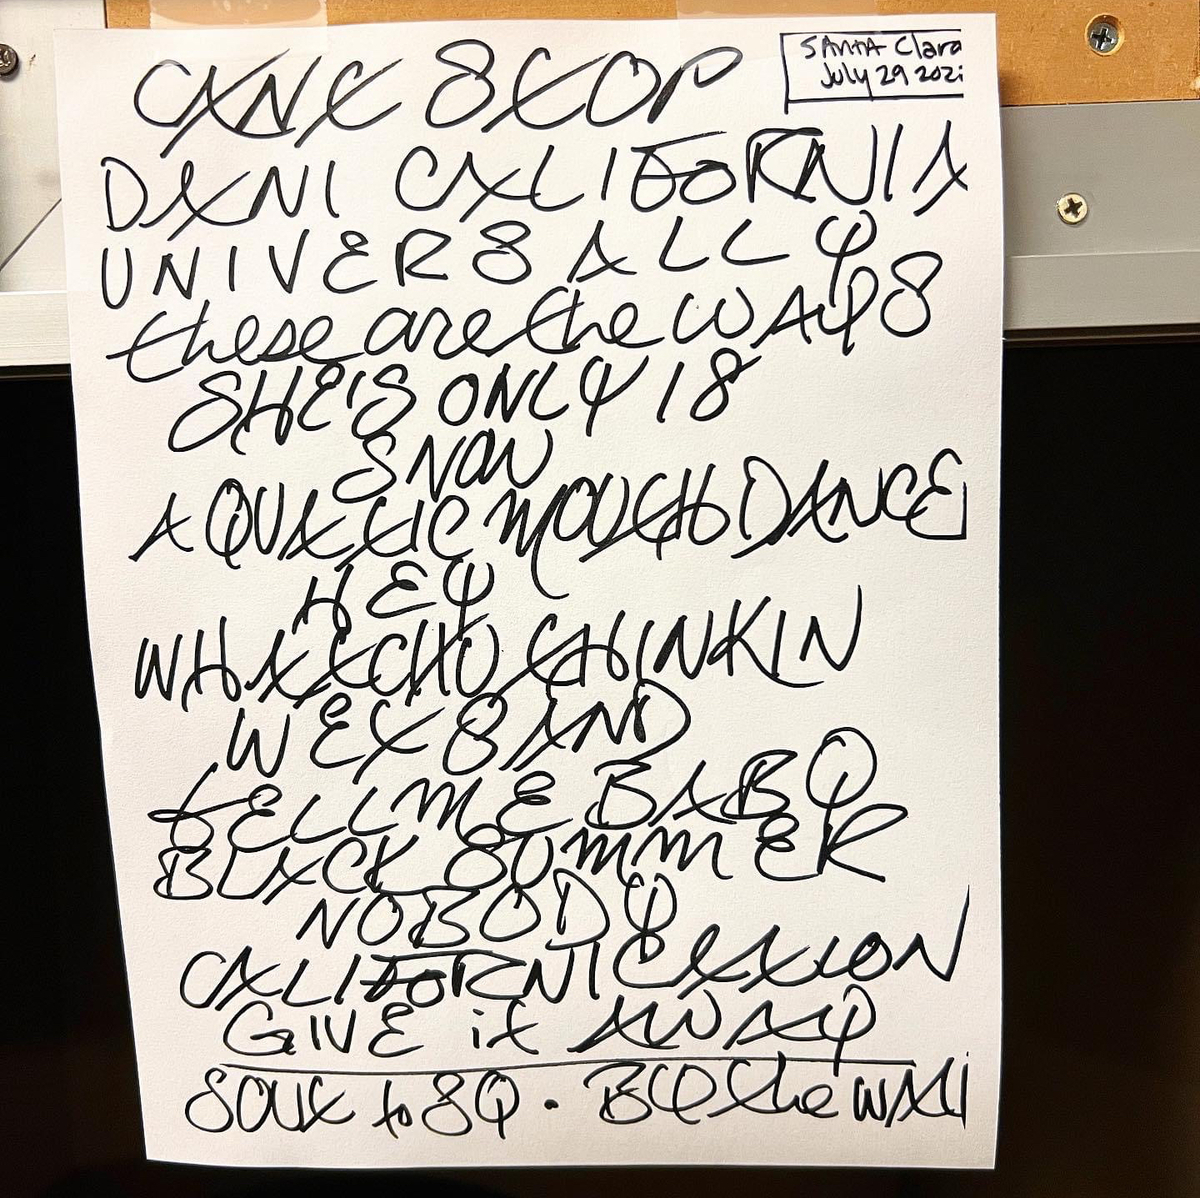 SANTA Clara
July 29 202
CAN'T STOP
DANI CALIFORNIA
UNIVERSALLY
these are the WAYS
SHE'S ONLY 18
SNOW
AQUATIC MOUTH DANCE
HEY
WHATCHU THINKIN
WET SAND
TELL ME BABY
BLACK SUMMER
NOBODY
CALIFORNICATION
GIVE it AWAY
SOUL to SQ. BY the WAY